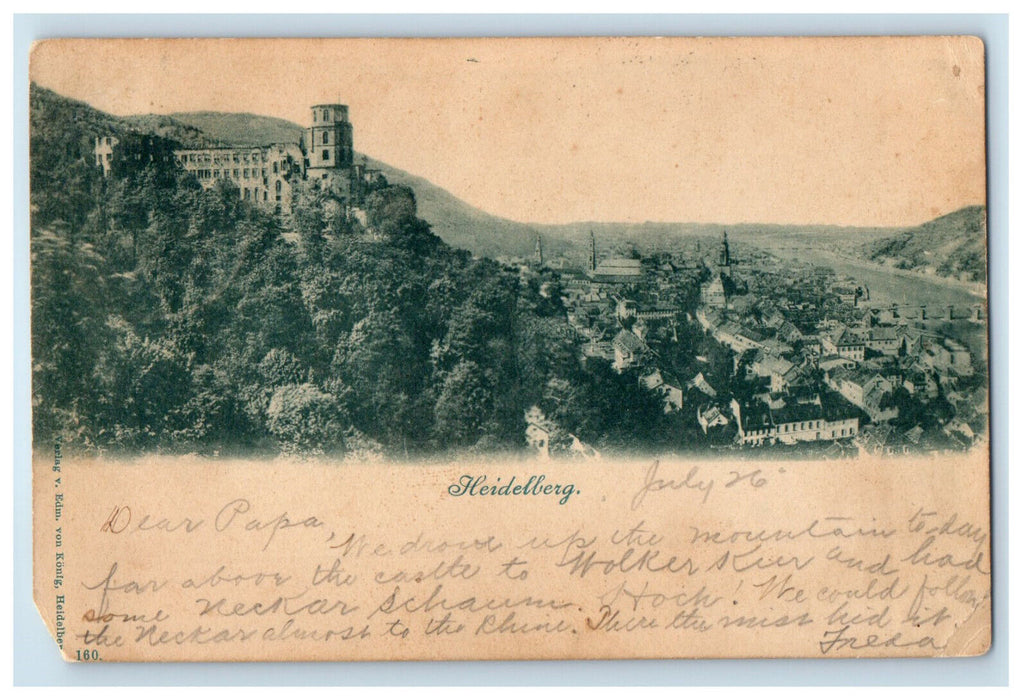 Heidelberg.
July 26
Dear Papa,
We drove up the mountain to-day
far above the castle to Wolker Kier and had
some Neckar Schaum. Hoch! We could follow
the Neckar almost to the Rhine. There the mist hid it.
Freda
Verlag v. Edm. von König, Heidelber
160.